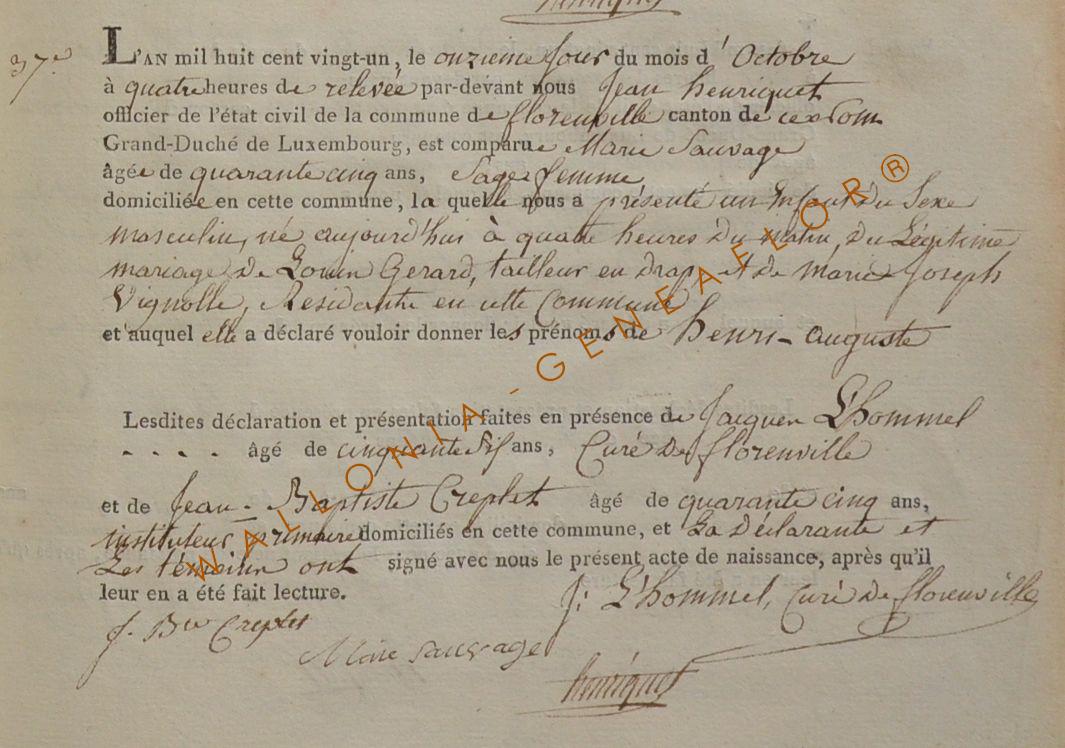 henriquet
37.e L'AN mil huit cent vingt-un, le onzieme Jour du mois d'Octobre
à quatre heures de relevée par-devant nous Jean henriquet
officier de l'état civil de la commune de florenville canton de
Grand-Duché de Luxembourg, est comparue Marie Sauvage
âgée de quarante cinq ans, Sage femme
domiciliée en cette commune, la quelle nous a présenté un Enfant du Sexe
masculin, né aujourd'hui à quatre heures du matin, du Légitime
mariage de Louis Gerard, tailleur en drap et de marie Joseph
Vignolle, Residante en cette Commune
et auquel elle a déclaré vouloir donner les prénoms de henri-auguste
Lesdites déclaration et présentation faites en présence de Jacques L'hommel
. . . . âgé de cinquante Six ans, Curé de florenville
et de Jean-Baptiste Creplet âgé de quarante cinq ans,
instituteur primaire domiciliés en cette commune, et La Déclarante et
Les témoins ont signé avec nous le présent acte de naissance, après qu'il
leur en a été fait lecture.
J: L'hommel, Curé de florenville
J. Bte Creplet
Marie Sauvage
henriquet
WALLONIA-GENEAFLOR®